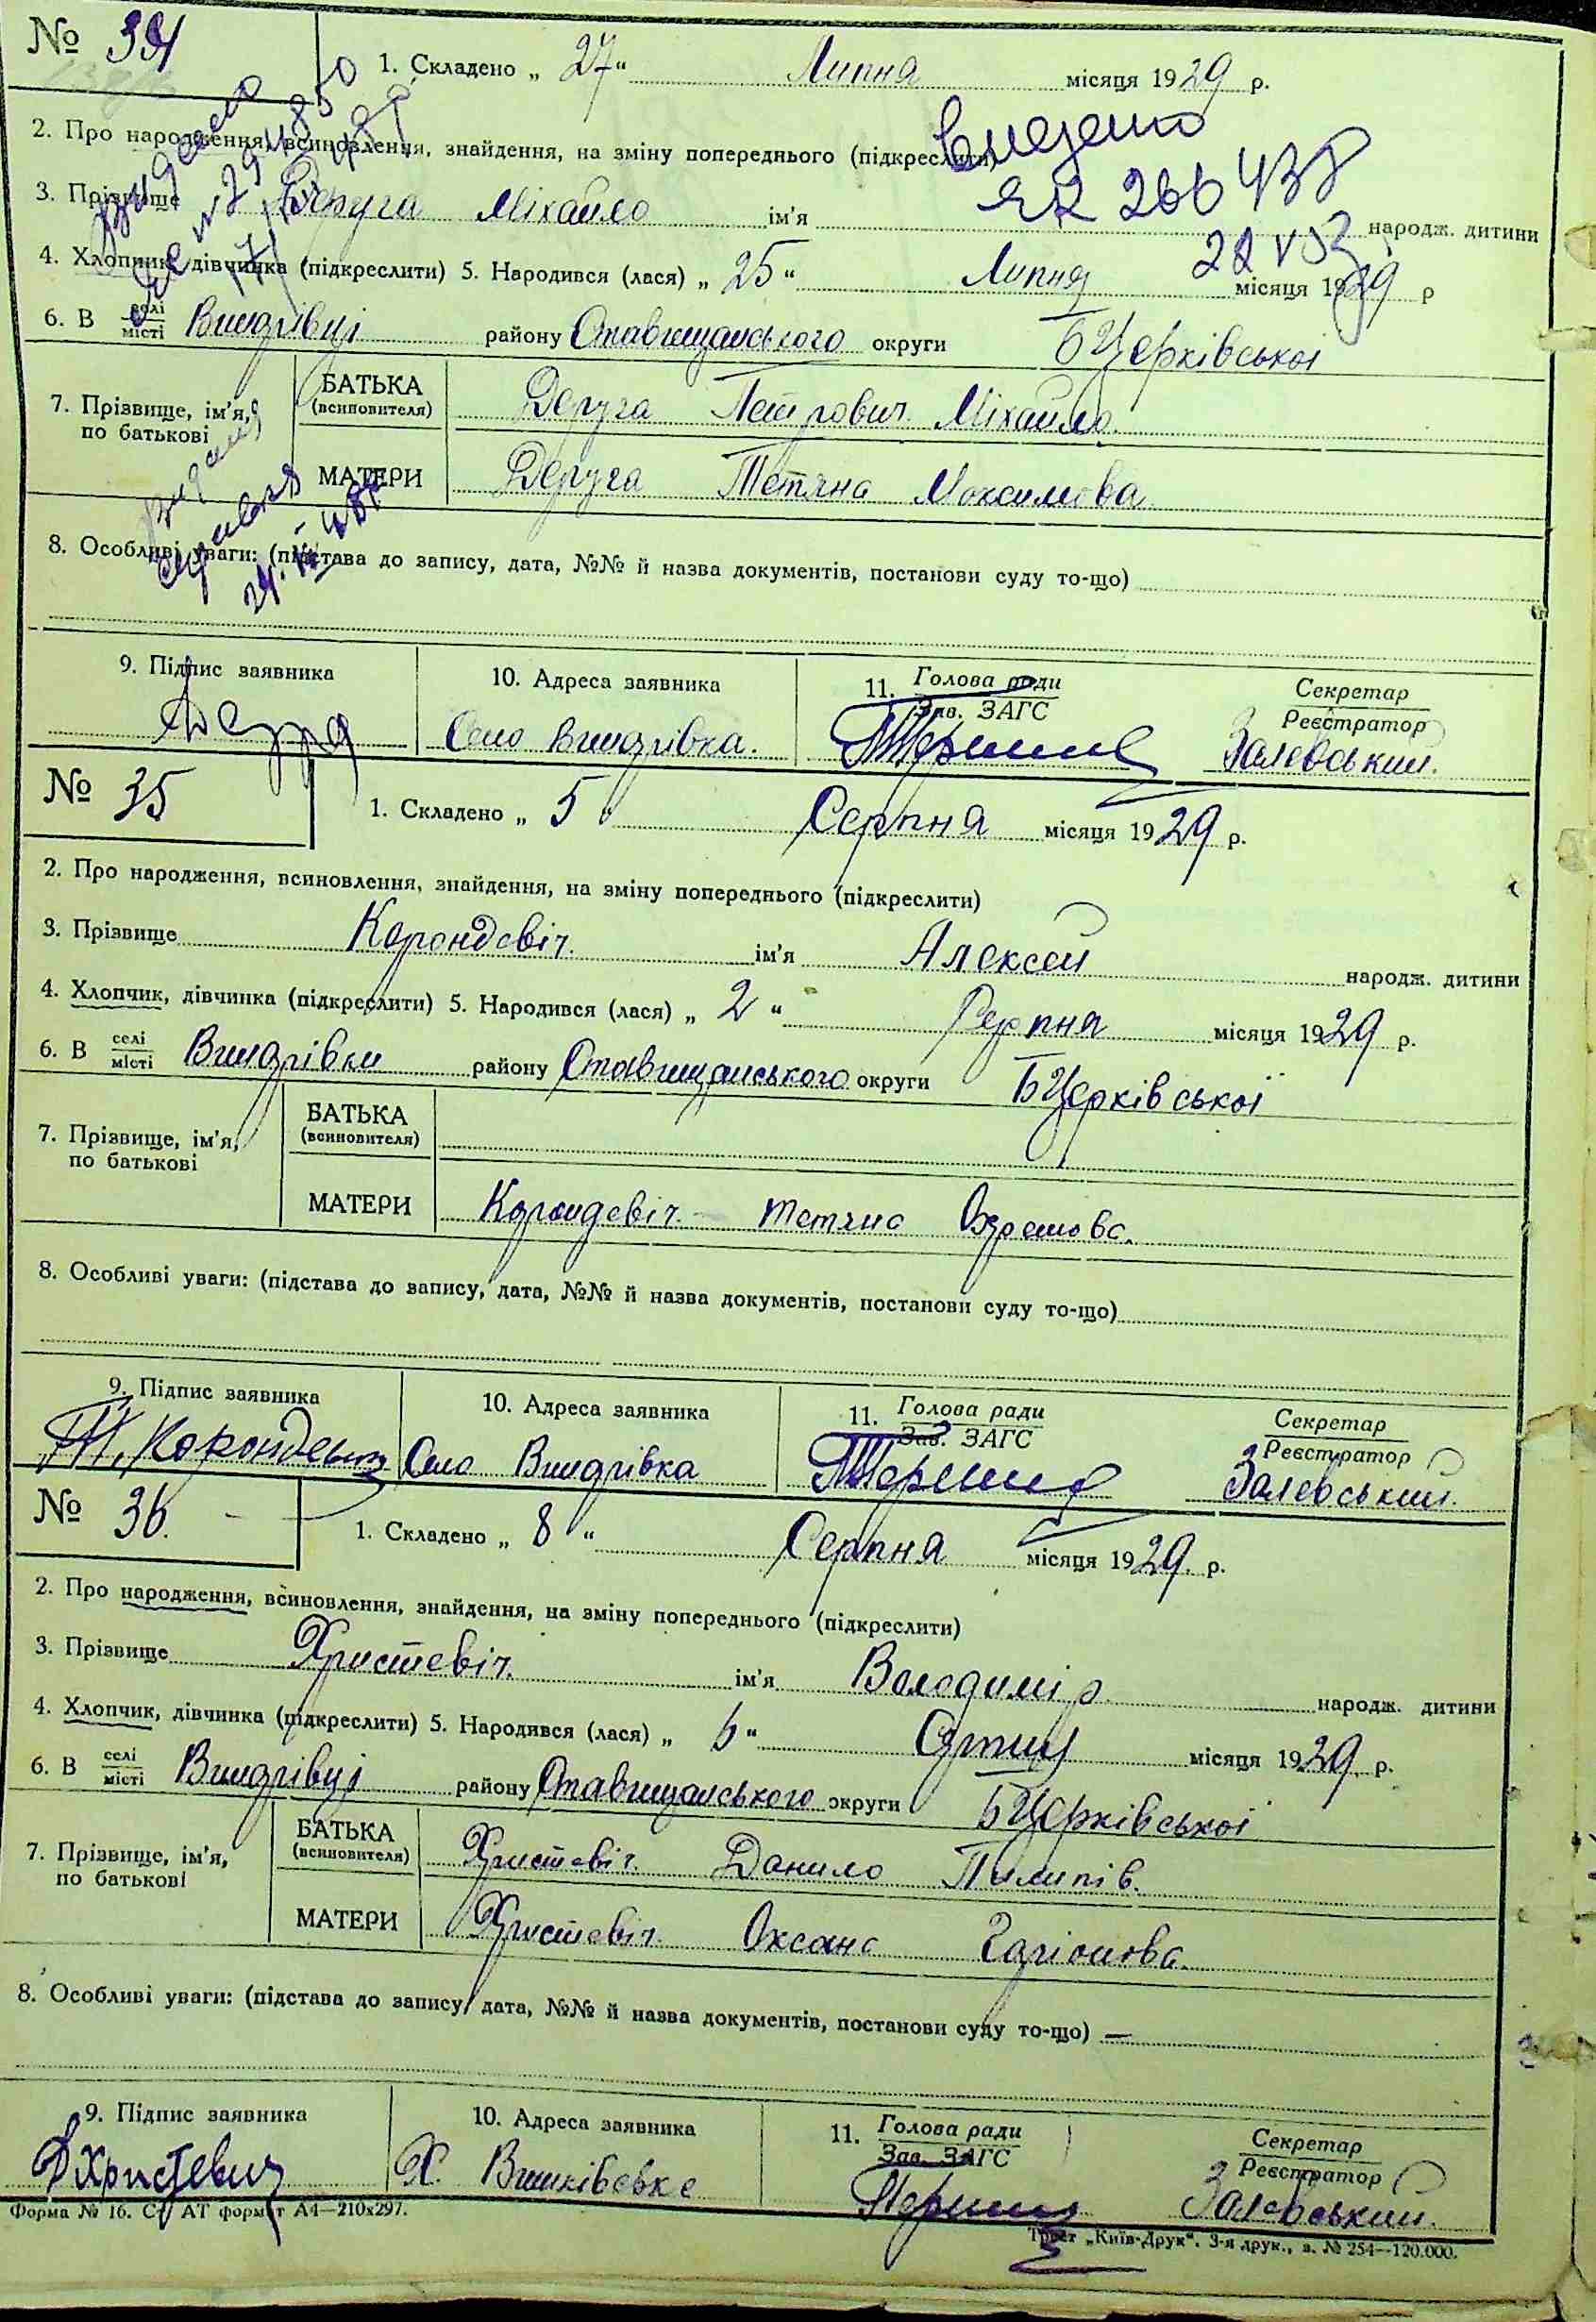 № 34
1. Складено „ 27 “ Липня місяця 1929 р.
2. Про народження, всиновлення, знайдення, на зміну попереднього (підкреслити)
3. Прізвище Деруга Міхайло ім'я народж. дитини
4. Хлопчик, дівчинка (підкреслити) 5. Народився (лася) „ 25 “ Липня місяця 1929 р
6. В селі/місті Винарівці району Ставищанського округи БЦерківської
7. Прізвище, ім'я, по батькові
БАТЬКА (всиновителя) Деруга Петрович Міхайло.
МАТЕРИ Деруга Тетяна Максимова
8. Особливі уваги: (підстава до запису, дата, №№ й назва документів, постанови суду то-що)
9. Підпис заявника 10. Адреса заявника 11. Голова ради/Зав. ЗАГС Секретар/Реєстратор
Село Винарівка. Залевський.
№ 35
1. Складено „ 5 “ Серпня місяця 1929 р.
2. Про народження, всиновлення, знайдення, на зміну попереднього (підкреслити)
3. Прізвище Карандевіч. ім'я Алексей народж. дитини
4. Хлопчик, дівчинка (підкреслити) 5. Народився (лася) „ 2 “ Серпня місяця 1929 р.
6. В селі/місті Винарівки району Ставищанського округи БЦерківської
7. Прізвище, ім'я, по батькові
БАТЬКА (всиновителя)
МАТЕРИ Карандевіч. Тетяна
8. Особливі уваги: (підстава до запису, дата, №№ й назва документів, постанови суду то-що)
9. Підпис заявника 10. Адреса заявника 11. Голова ради/Зав. ЗАГС Секретар/Реєстратор
Село Винарівка Залевський.
№ 36.
1. Складено „ 8 “ Серпня місяця 1929. р.
2. Про народження, всиновлення, знайдення, на зміну попереднього (підкреслити)
3. Прізвище Христевіч. ім'я Володимір народж. дитини
4. Хлопчик, дівчинка (підкреслити) 5. Народився (лася) „ 6 “ місяця 1929. р.
6. В селі/місті Винарівці району Ставищанського округи БЦерківської
7. Прізвище, ім'я, по батькові
БАТЬКА (всиновителя) Христевіч. Данило Пилипів.
МАТЕРИ Христевіч. Оксана
8. Особливі уваги: (підстава до запису, дата, №№ й назва документів, постанови суду то-що) —
9. Підпис заявника 10. Адреса заявника 11. Голова ради/Зав. ЗАГС Секретар/Реєстратор
ДХристевич Х. Залевський.
Форма № 16. Ст АТ формат А4—210х297.
Трест „Київ-Друк“. 3-я друк., з. № 254—120.000.